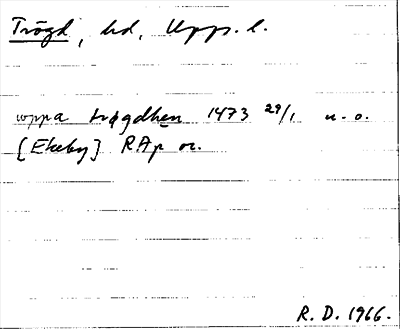 Trögd, hd, Upps. l.
uppa trøgdhen 1473 29/1 u. o.
[Ekeby] RAp or.
R. D. 1966.